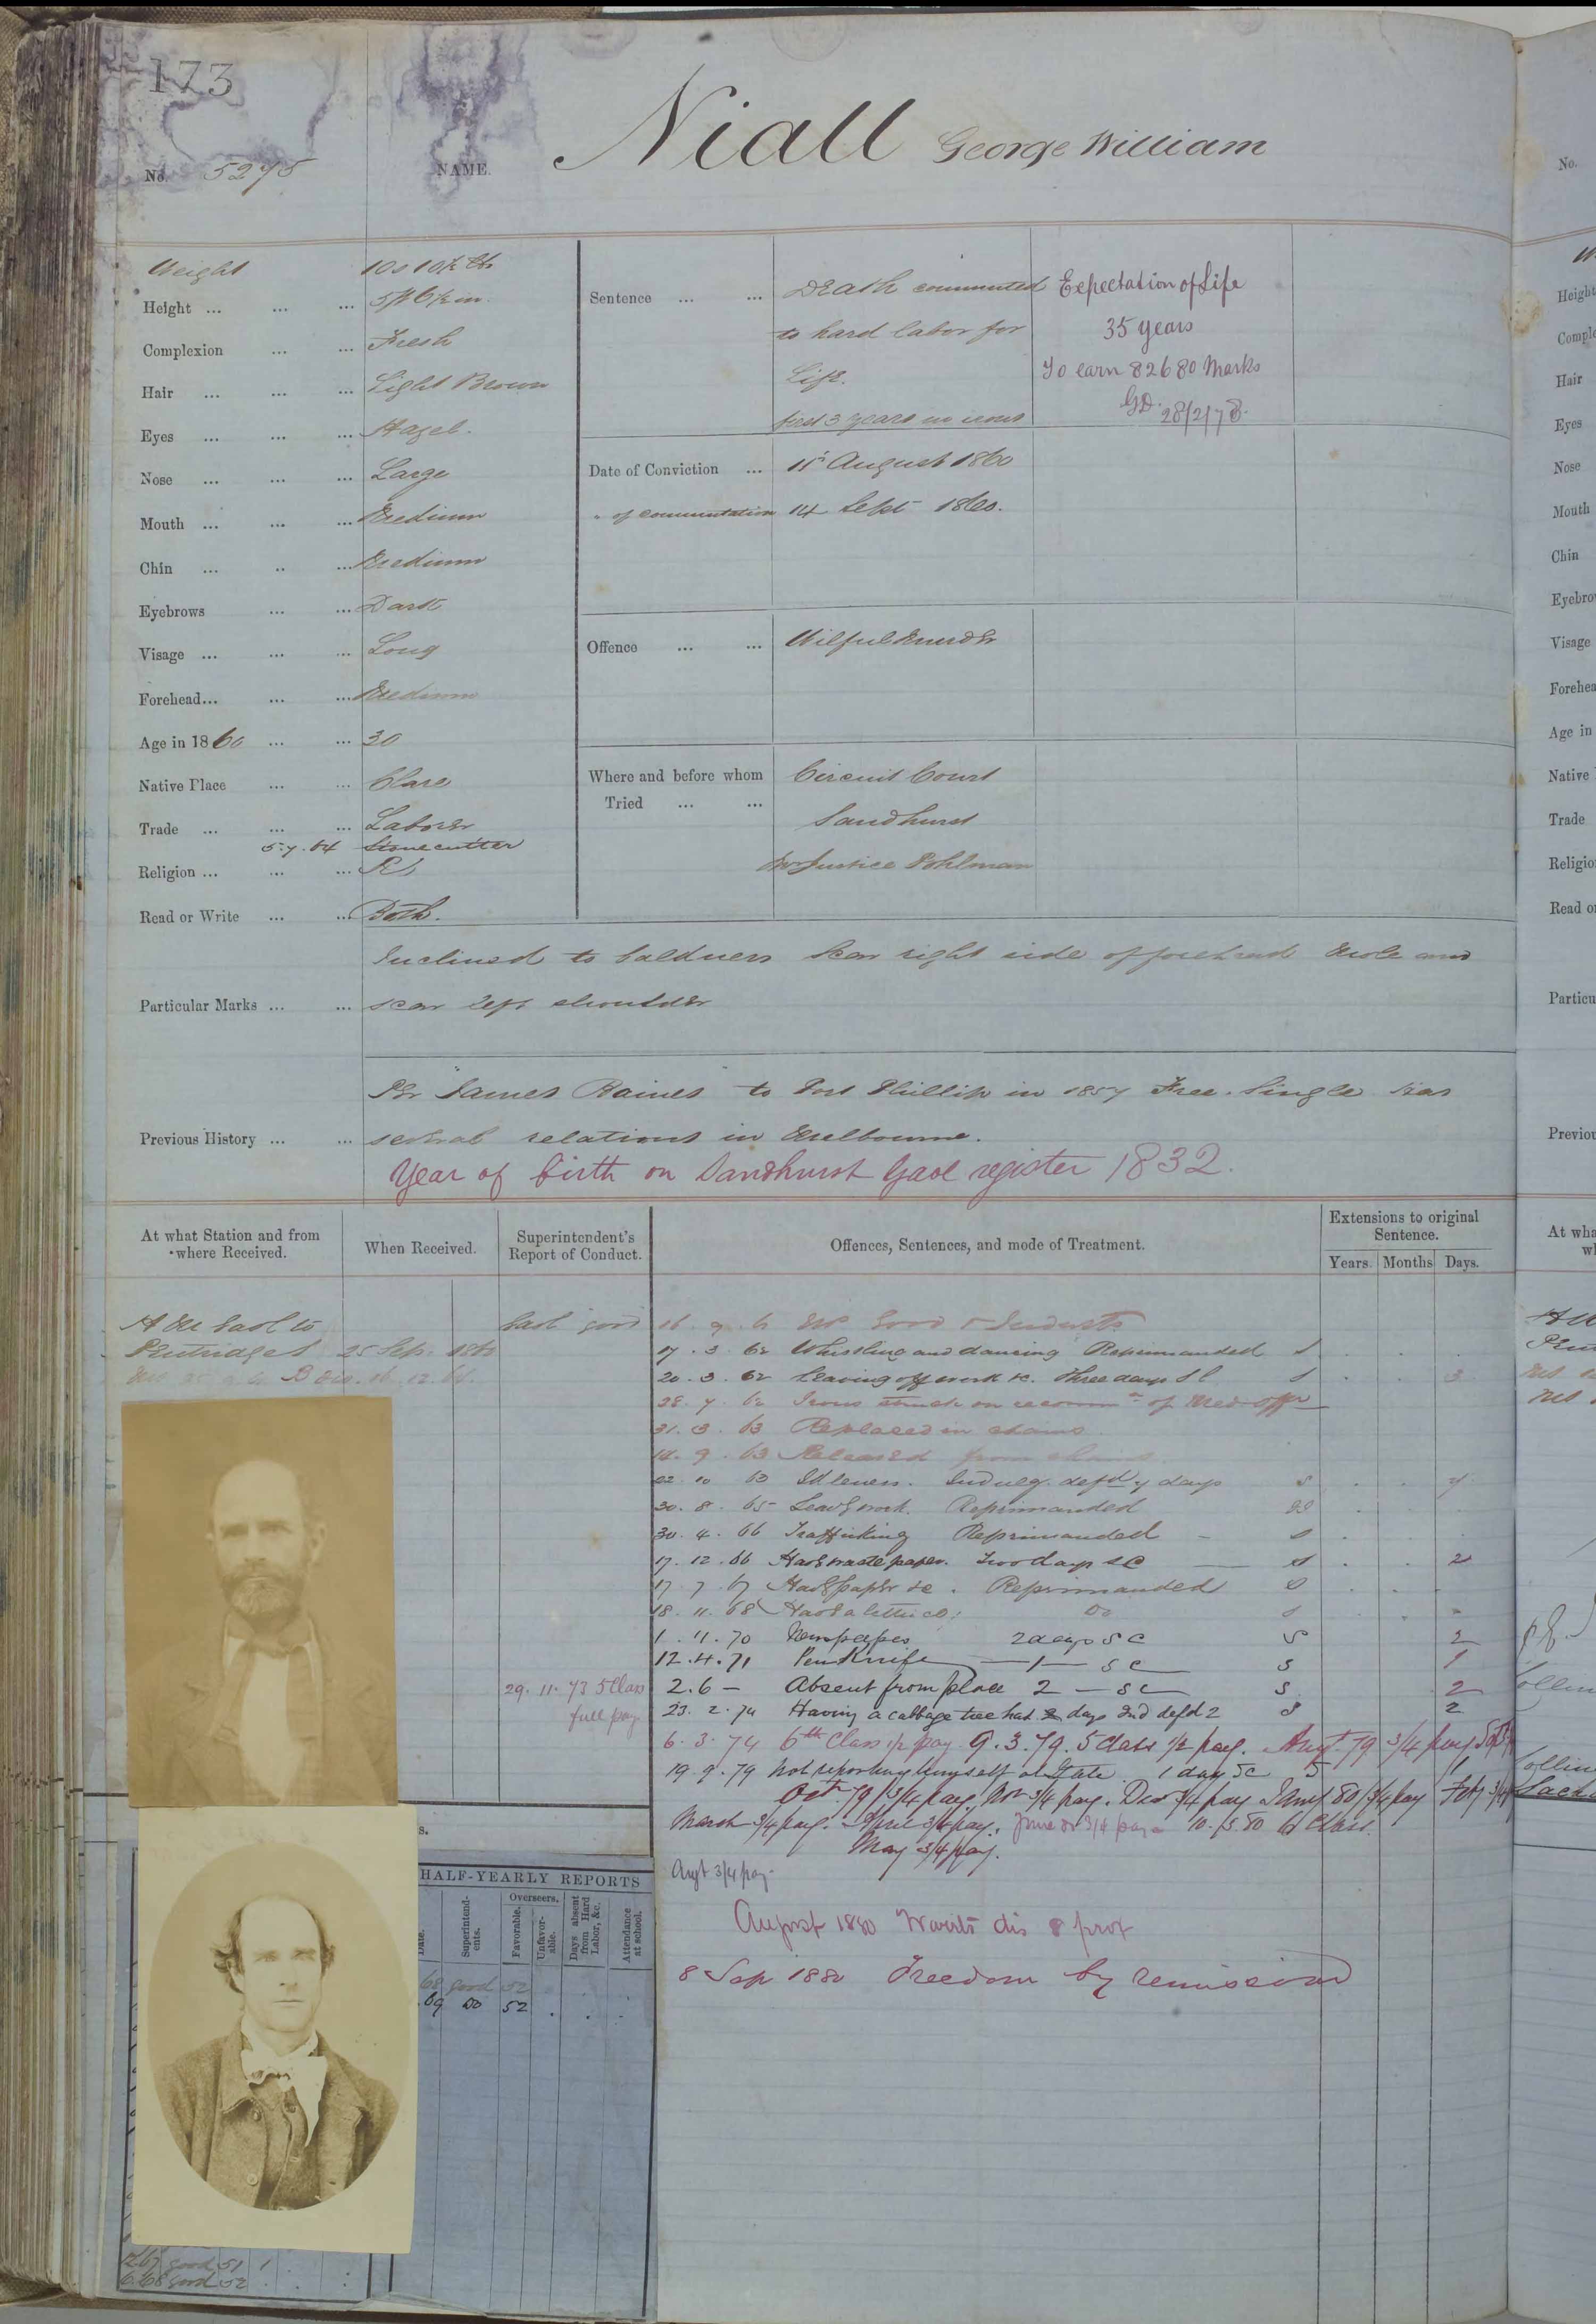 173
No. 5275 NAME. Niall George William
Weight 10s 10½ lb
Height ... 5ft 6½ in.
Complexion ... Fresh
Hair ... Light Brown
Eyes ... Hazel.
Nose ... Large
Mouth ... Medium
Chin ... Medium
Eyebrows ... Dark
Visage ... Long
Forehead... Medium
Age in 1860 ... 30
Native Place ... Clare
Trade ... Laborer
5.7.64 Stonecutter
Religion ... RC
Read or Write ... Both.
Sentence ... Death commuted
to hard labor for
Life.
first 3 years in irons
Expectation of Life
35 years
To earn 82680 Marks
GD. 28/2/78.
Date of Conviction ... 11 August 1860
" of commutation 14 Sept 1860.
Offence ... Wilful Murder
Where and before whom Circuit Court
Tried ... Sandhurst
Mr Justice Pohlman
Inclined to baldness Scar right side of forehead Mole and
Particular Marks ... scar left shoulder
Per "James Baines" to Port Phillip in 1857 Free. Single. Has
Previous History ... several relations in Melbourne.
Year of birth on Sandhurst Gaol register 1832.
At what Station and from where Received.
When Received.
Superintendent's Report of Conduct.
Offences, Sentences, and mode of Treatment.
Extensions to original Sentence.
Years. Months Days.
Gaol to
Pentridge 25 Sep. 1860
Gaol good
17.3.62 Whistling and dancing Reprimanded
20.3.62 Leaving off work &c. Three days SC 3
28.7.62 Irons struck on recomm of Med offr
31.3.63 Replaced in chains
14.9.63 Released from chains
22.10.63 Idleness. Indulg. defd 7 days 7
30.8.65 Leavg work. Reprimanded
30.4.66 Trafficking Reprimanded
17.12.66 Havg waste paper. Two days SC 2
17.7.67 Havg paper &c. Reprimanded
18.11.68 Havg a lettice: Do
1.11.70 Newspaper 2 days SC S 2
12.4.71 Pen Knife —1— SC S 1
2.6 — Absent from place 2 — SC S 2
29.11.73 5 Class
full pay
23.2.74 Having a cabbage tree hat 2 days Ind defd 2 2
6.3.74 6th Class ½ pay 9.3.79. 5 Class ½ pay. Augt. 79 3/4 pay
19.9.79 Not reporting himself at Gate 1 day SC S 1
Oct 79 3/4 pay. Nov 3/4 pay. Dec 3/4 pay Jany 80 3/4 pay Feby 3/4
March 3/4 pay. April 3/4 pay. June 3/4 pay 10.5.80 6 Class.
May 3/4 pay.
Augt 3/4 pay
August 1880
8 Sep 1880 Freedom by remission
HALF-YEARLY REPORTS
Date.
Superintendents.
Overseers.
Favorable.
Unfavorable.
Days absent from Hard Labor, &c.
Attendance at school.
68 good 52
.69 Do 52
67 good 51 1
6.68 good 52
No.
Height
Hair
Eyes
Nose
Mouth
Chin
Visage
Age in
Native
Trade